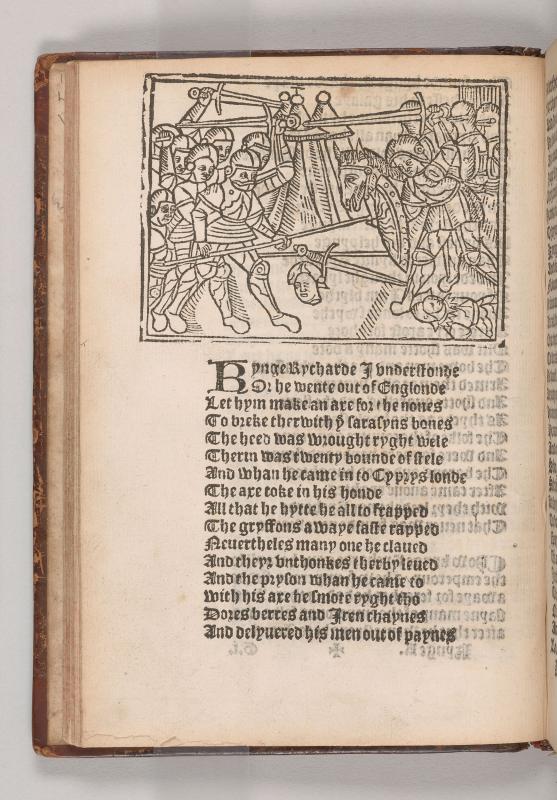 Kynge Rycharde I vnderstonde
Or he wente out of Englonde
Let hym make an axe for the nones
To breke therwith yͤ sarasyns bones
The heed was wrought ryght wele
Therin was twenty bounde of stele
And whan he came in to Cyprys londe
The axe toke in his honde
All that he hytte he all to frapped
The gryffons awaye faste rapped
Neuertheles many one he claued
And theyr vnthonkes ther by leued
And the pryson whan he came to
with his axe he smote ryght tho
Dores berres and Iren chaynes
And delyuered his men out of paynes